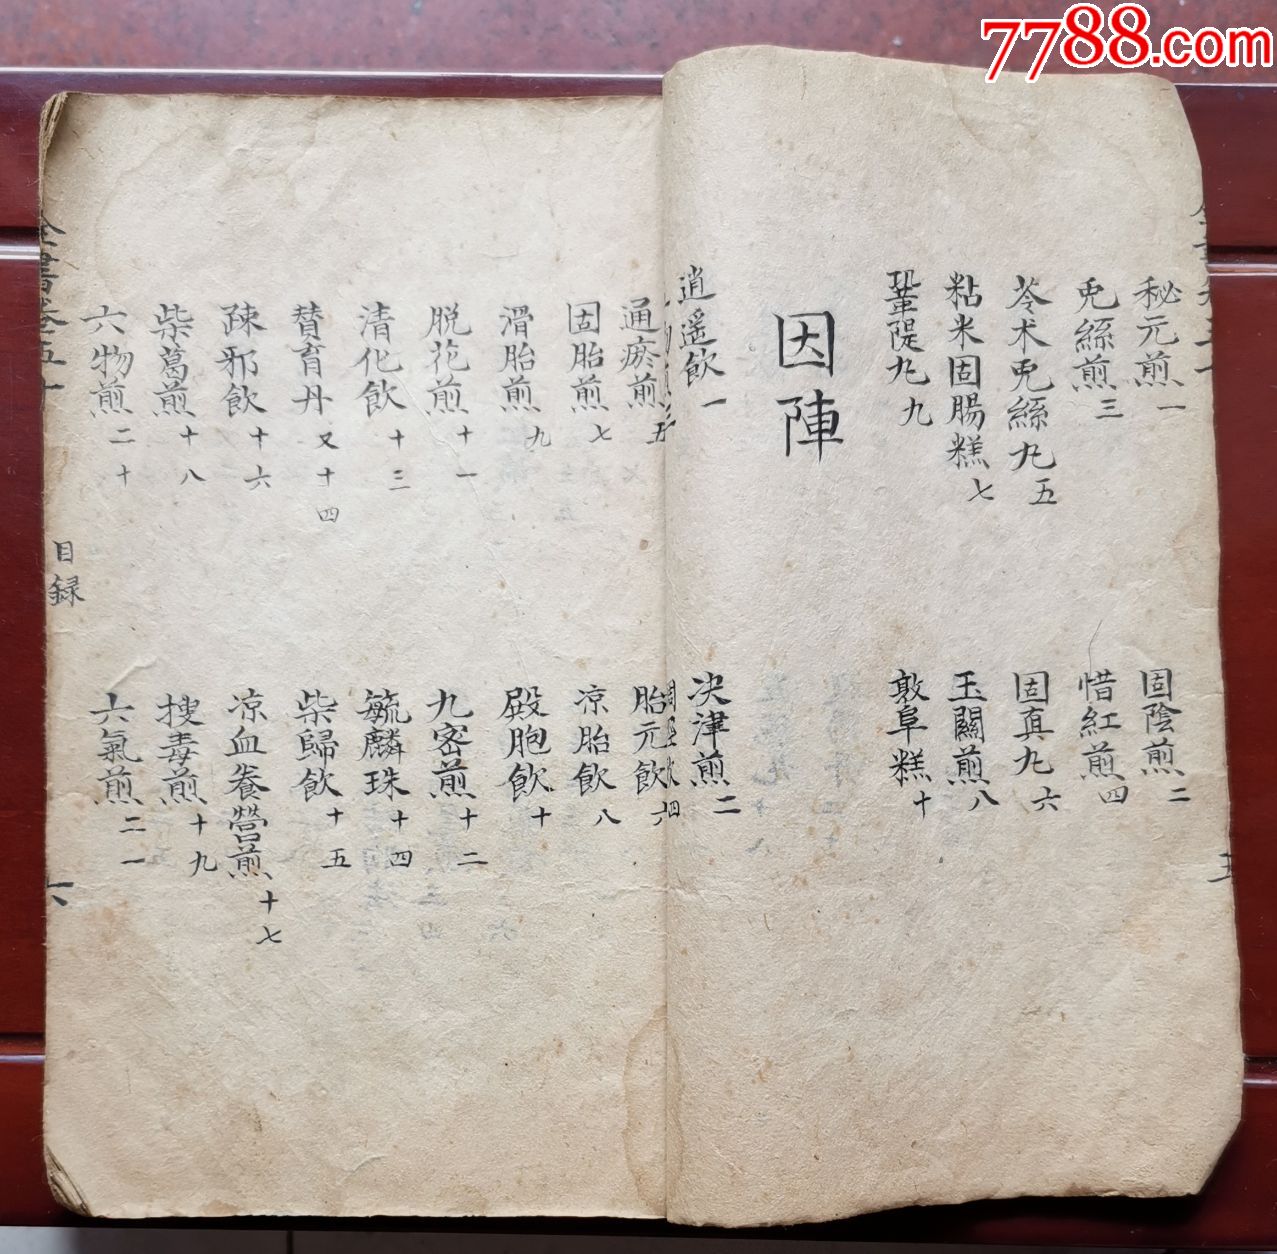 7788.com
秘元煎一
固陰煎二
兎絲煎三
惜紅煎四
苓术兎絲丸五
固真丸六
粘米固腸糕七
玉關煎八
鞏隄丸九
敦阜糕十
因陣
逍遥飲一
決津煎二
五物煎三
固胎飲四
通瘀煎五
胎元飲六
固胎煎七
凉胎飲八
滑胎煎九
殿胞飲十
脱花煎十一
九密煎十二
清化飲十三
毓麟珠十四
贊育丹又十四
柴歸飲十五
疎邪飲十六
凉血養營煎十七
柴葛煎十八
搜毒煎十九
六物煎二十
六氣煎二一
全書卷五十
目録
六